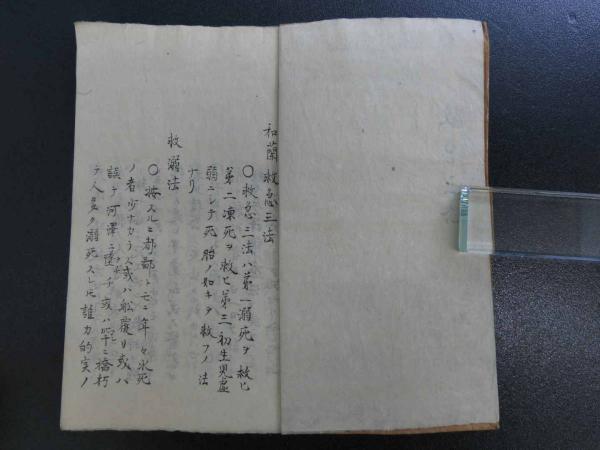 和蘭救急三法
〇救急三法ハ第一溺死ヲ救ヒ
第二凍死ヲ救ヒ第三初生児虚
弱ニシテ死胎ノ如キヲ救フノ法
ナリ
救溺法
〇按スルニ都鄙トモニ年々水死
ノ者少ナカラス或ハ舩覆リ或ハ
誤テ河澤ニ墜チ或ハ橋朽
テ人多ク溺死スレ𪜈誰カ的実ノ